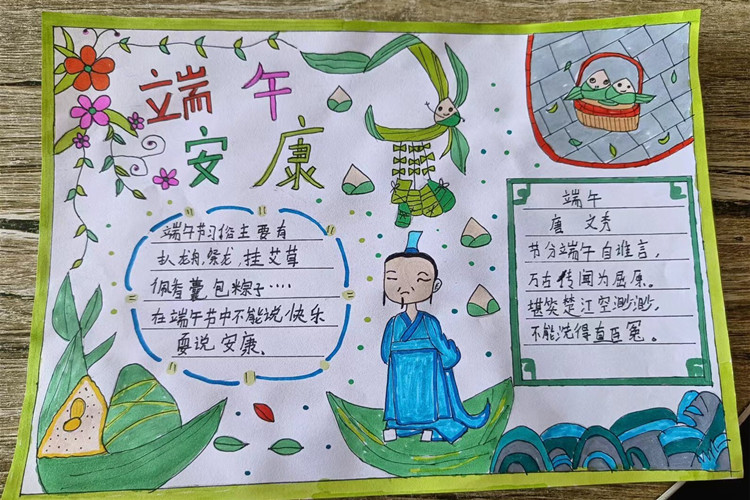 端午
安康
端午节习俗主要有
扒龙舟,祭龙,挂艾草
佩香囊 包粽子....
在端午节中不能说快乐
要说安康、
端午
唐 文秀
节分端午自谁言,
万古传闻为屈原。
堪笑楚江空渺渺,
不能洗得直臣冤。